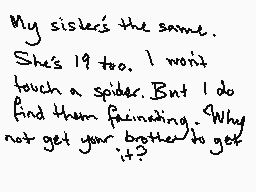 My sister's the same.
She's 19 too. I won't
touch a spider. But I do
find them facinating. Why
not get your brother to get
it?